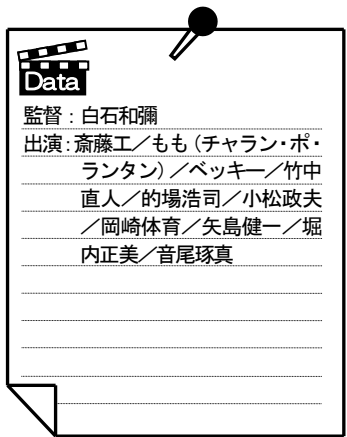 Data
監督：白石和彌
出演：斎藤工／もも（チャラン・ポ・
ランタン）／ベッキー／竹中
直人／的場浩司／小松政夫
／岡崎体育／矢島健一／堀
内正美／音尾琢真